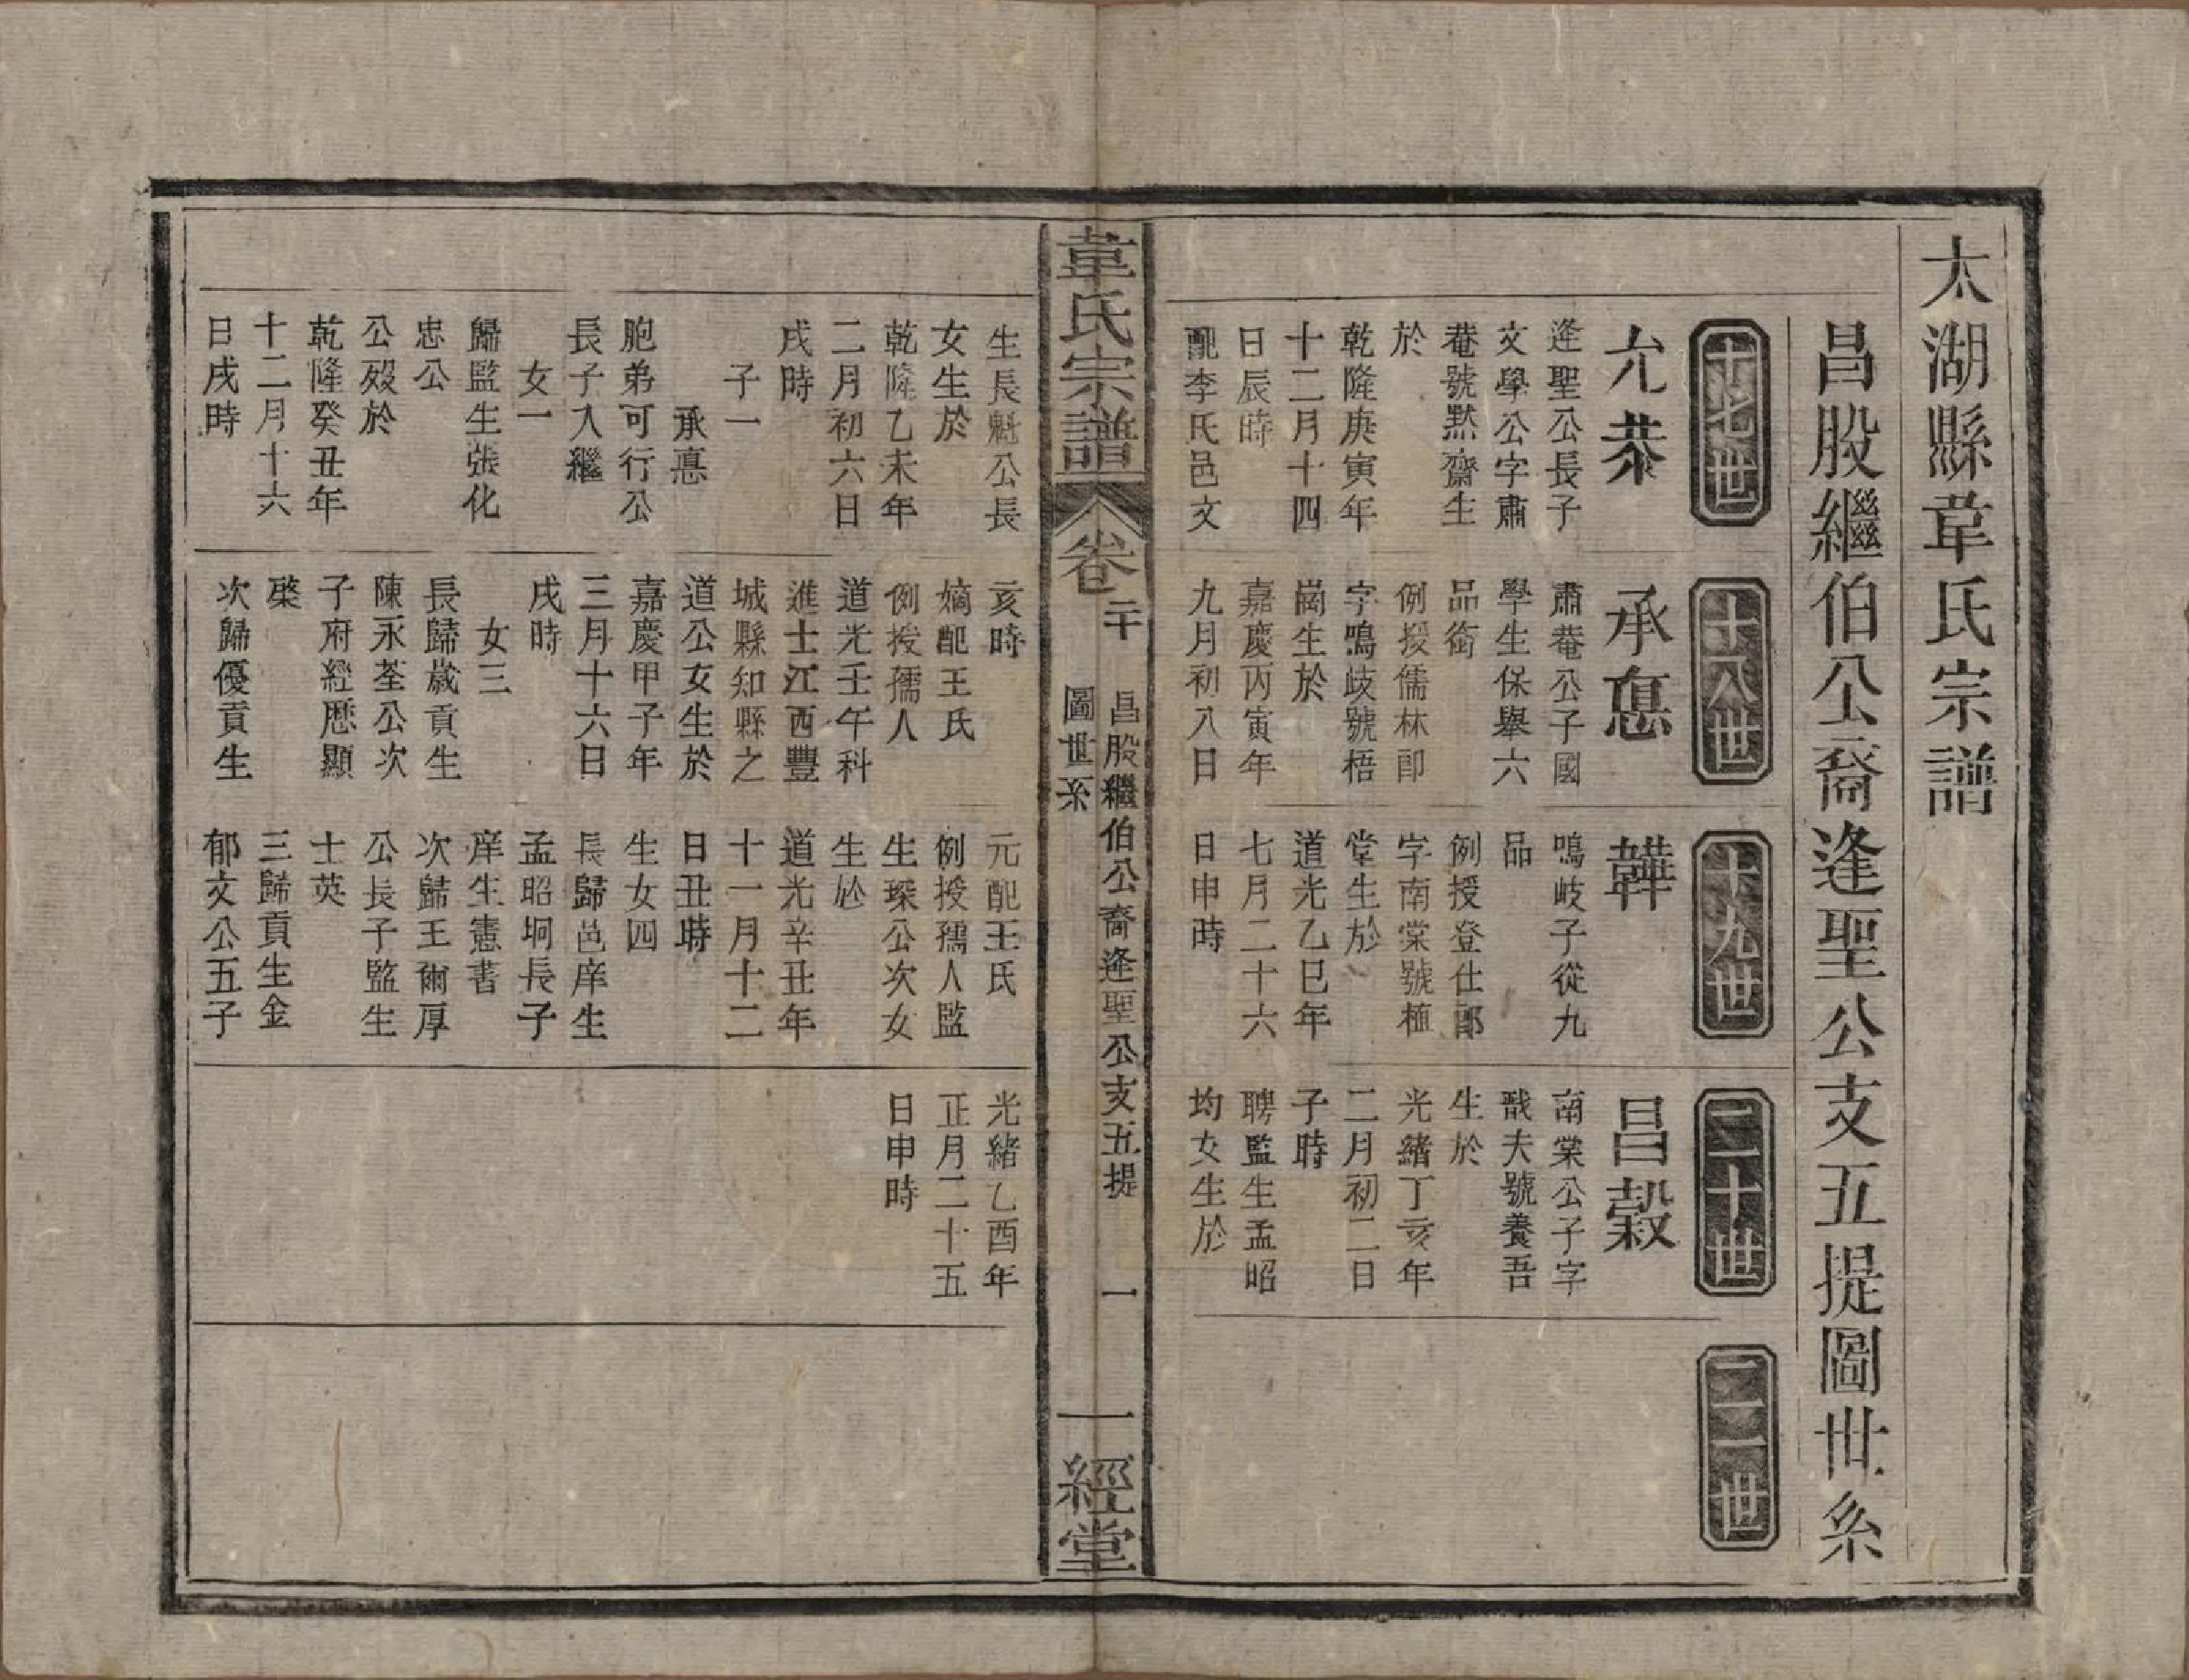 太湖縣韋氏宗譜
昌股繼伯公裔逢聖公支五提圖世系
十七世
允恭
逢聖公長子
文學公字肅
菴號默齋生
於
乾隆庚寅年
十二月十四
日辰時
配李氏邑文
十八世
承惪
肅菴公子國
學生保舉六
品銜
例授儒林郎
字鳴岐號梧
崗生於
嘉慶丙寅年
九月初八日
十九世
韡
鳴岐子從九
品
例授登仕郎
字南棠號植
堂生於
道光乙巳年
七月二十六
日申時
二十世
昌榖
南棠公子字
戩夫號養吾
生於
光緒丁亥年
二月初二日
子時
聘監生孟昭
均女生於
二一世
韋氏宗譜
卷二十
昌股繼伯公裔逢聖公支五提
圖世系
一
一經堂
生長魁公長
女生於
乾隆乙未年
二月初六日
戌時
子一
承惪
胞弟可行公
長子入繼
女一
歸監生張化
忠公
公歿於
乾隆癸丑年
十二月十六
日戌時
亥時
嫡配王氏
例授孺人
道光壬午科
進士江西豐
城縣知縣之
道公女生於
嘉慶甲子年
三月十六日
戌時
女三
長歸歲貢生
陳永荃公次
子府經歷顯
棨
次歸優貢生
元配王氏
例授孺人監
生琛公次女
生於
道光辛丑年
十一月十二
日丑時
生女四
長歸邑庠生
孟昭坰長子
庠生憲書
次歸王爾厚
公長子監生
士英
三歸貢生金
郁文公五子
光緒乙酉年
正月二十五
日申時